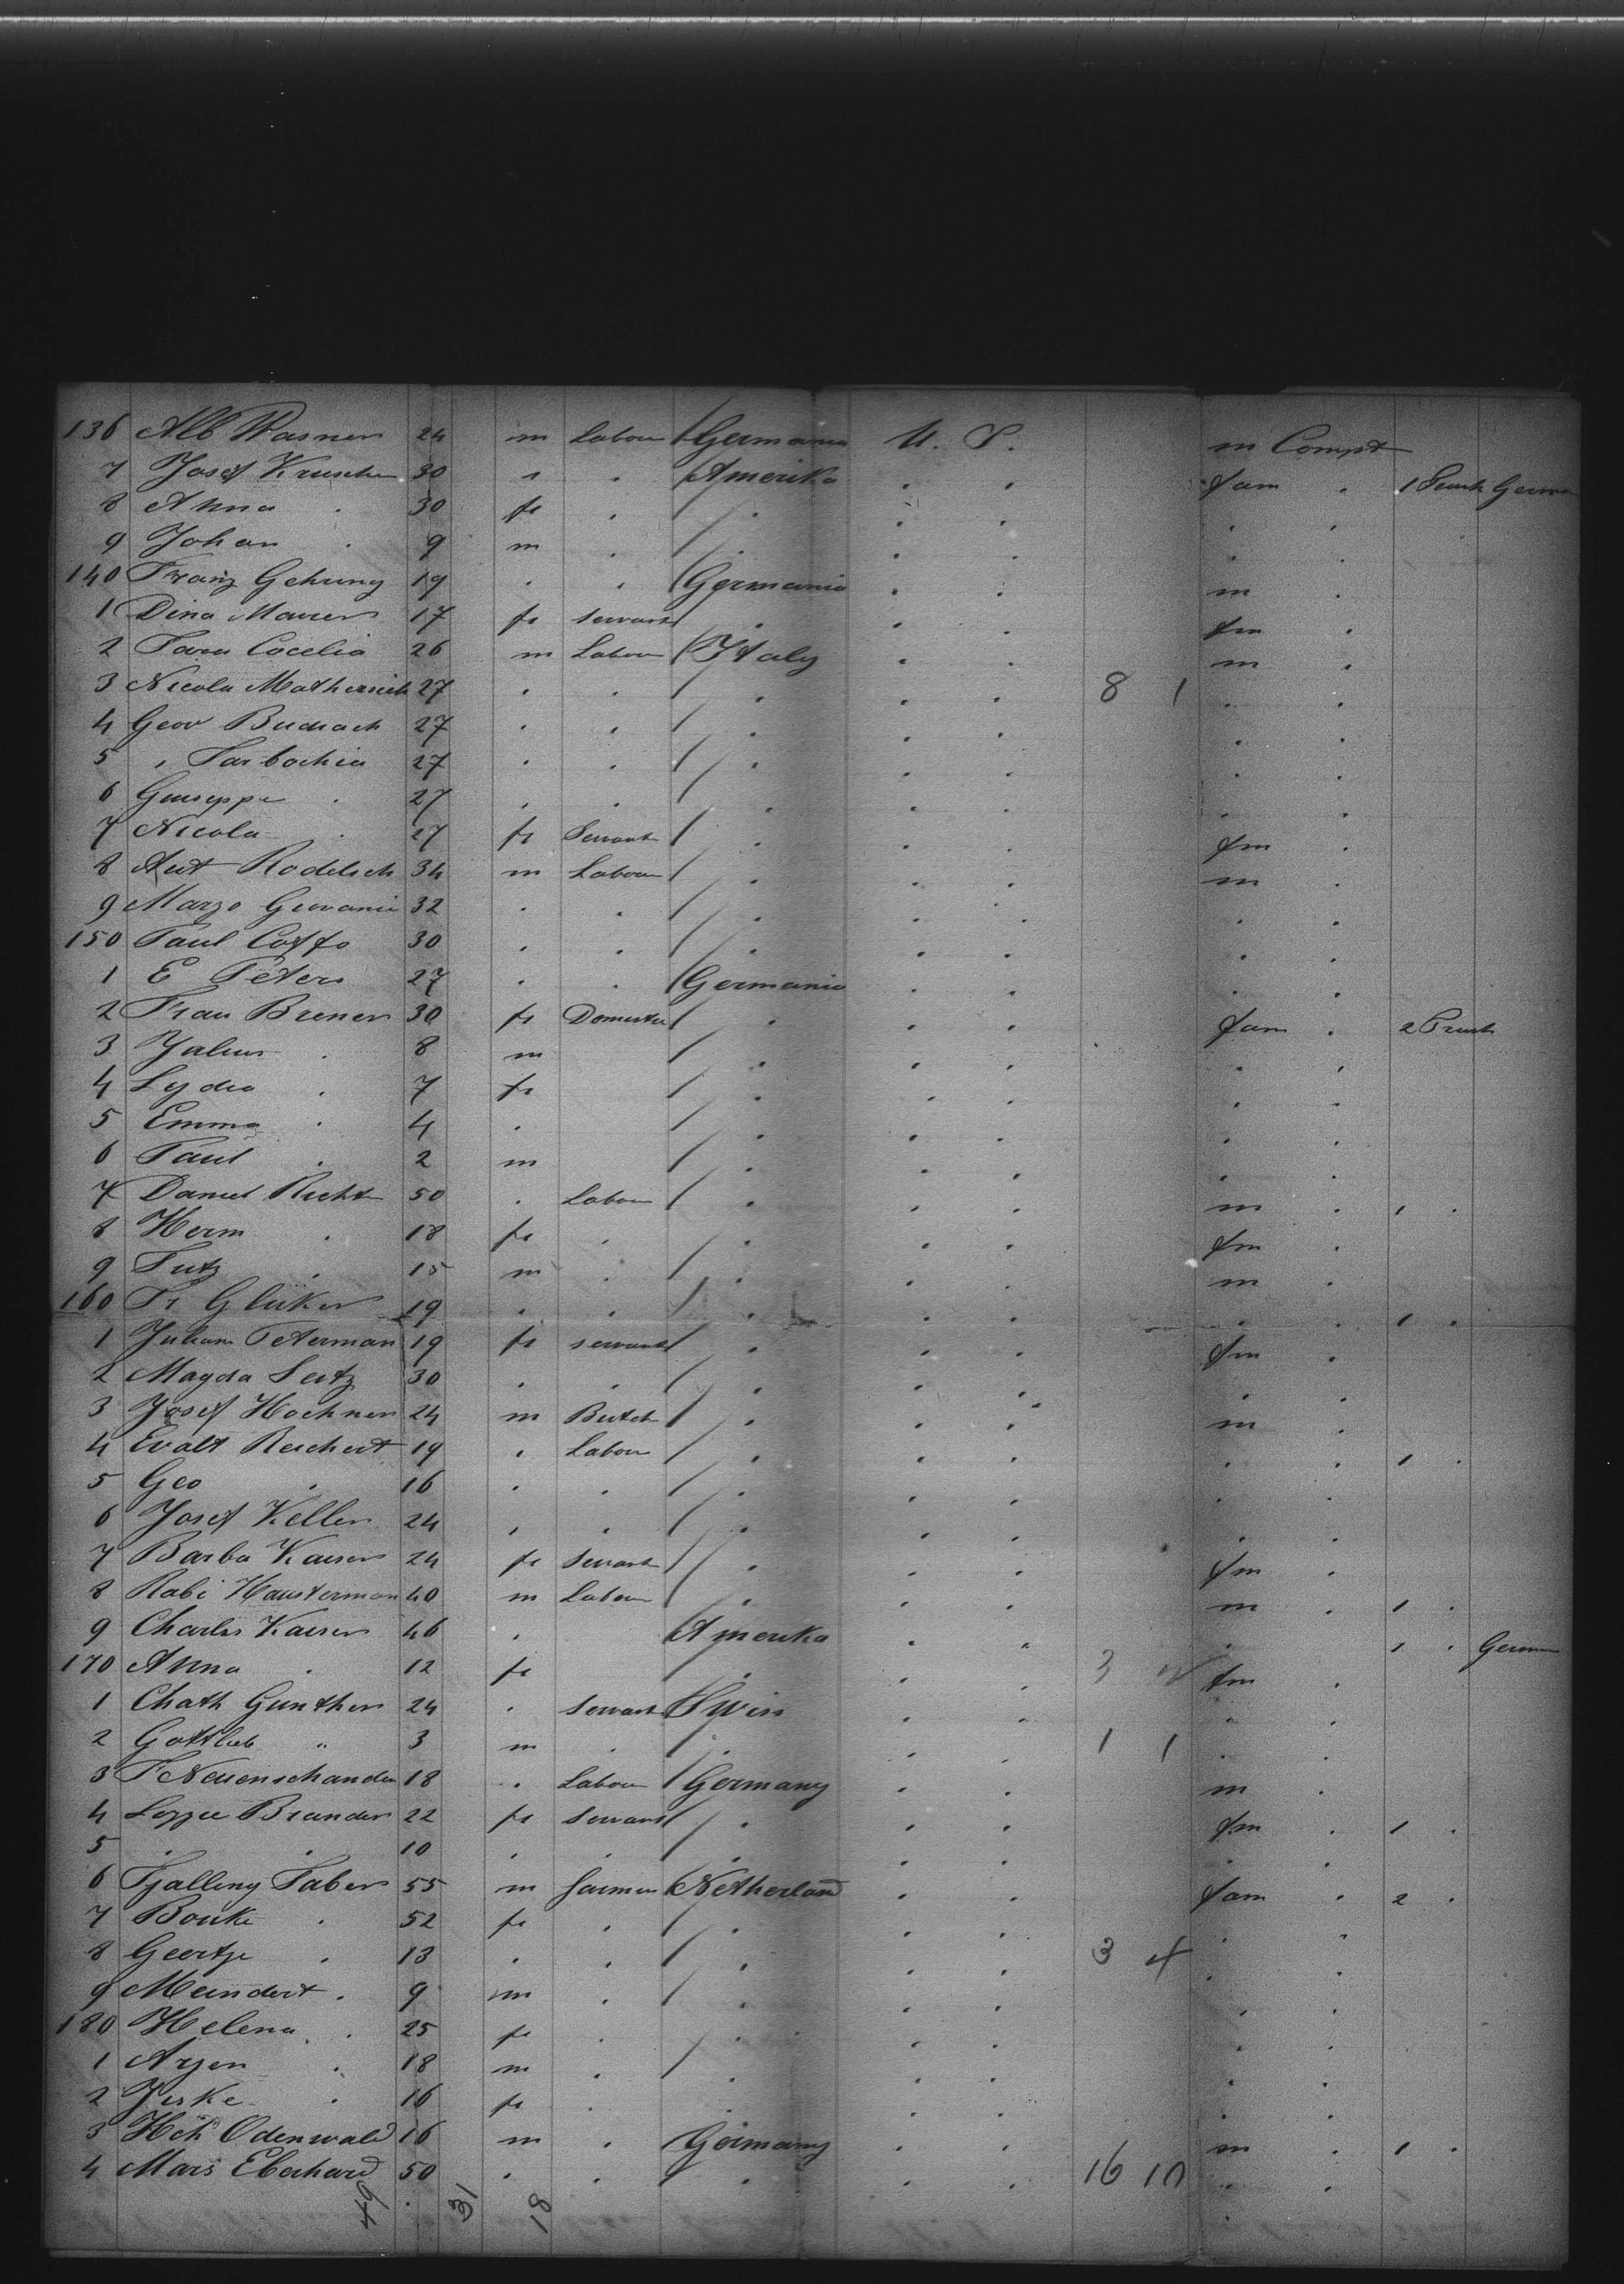 136 Alb Wasner 24 m Labour Germania U. S. m Compt
7 Josef Krusche 30 " " Amerika " " fam " 1 Germ
8 Anna " 30 fe " " " " " "
9 Johan " 9 m " " " " " "
140 Franz Gehrung 19 " " Germania " " m "
1 Dina Maurer 17 fe servant " " " fm "
2 Cocelia 26 m Labour Italy " " m "
3 Nicola Mathernich 27 " " " " " 8 1 " "
4 Geov Budrach 27 " " " " " " "
5 " Tarbochia 27 " " " " " " "
6 Guiseppe " 27 " " " " " " "
7 Nicola " 27 fe Servant " " " fm "
8 Ant Rodelich 34 m Labour " " " m "
9 Marzo Giovanie 32 " " " " " " "
150 Paul Coffo 30 " " " " " " "
1 E Peters 27 " " Germania " " " "
2 Frau Brener 30 fe Domestic " " " fam " 2
3 Julius " 8 m " " " " "
4 Lydia " 7 fe " " " " "
5 Emma " 4 " " " " " "
6 Paul " 2 m " " " " "
7 Daniel Richt 50 " Labour " " " m " 1 "
8 Herm " 18 fe " " " " fm "
9 Fritz " 15 m " " " " m "
160 Fr Glüker 19 " " " " " " " 1 "
1 Juliane Peterman 19 fe servant " " " fm "
2 Magda Seitz 30 " " " " " " "
3 Josef Hochner 24 m Butch " " " m "
4 Evalt Reichert 19 " Labour " " " " " 1 "
5 Geo " 16 " " " " " " "
6 Josef Keller 24 " " " " " " "
7 Barba Kaiser 24 fe Servant " " " fm "
8 Rabi Hausterman 40 m Labour " " " m " 1 "
9 Charles Kaiser 46 " Amerika " " " 1 " German
170 Anna " 12 fe " " " 3 fm "
1 Chath Gunther 24 " Servant Swiss " " " "
2 Gottlieb " 3 m " " " " 1 1 " "
3 F Neuenschander 18 " Labour Germany " " m "
4 Lizzie Brander 22 fe Servant " " " fm " 1 "
5 " " 10 " " " " " " "
6 Tjalling Faber 55 m farmer Netherland " " fam " 2 "
7 Bouke " 52 fe " " " " " "
8 Geertje " 13 " " " " " 3 4 " "
9 Meindert " 9 m " " " " " "
180 Helena " 25 fe " " " " " "
1 Arjen " 18 m " " " " " "
2 Jeske " 16 fe " " " " " "
3 Hch Odenwald 16 m " Germany " " m " 1 "
4 Mais Eberhard 50 " " " " " 16 10 " "
31 18